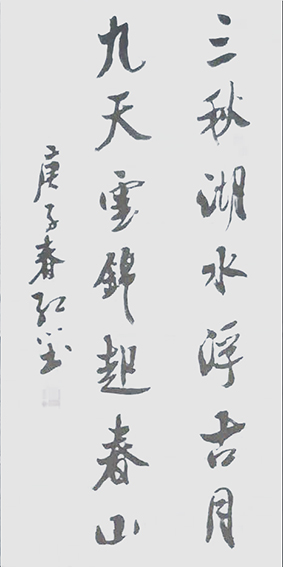 三秋湖水浮古月
九天雲錦起春山
庚子春红